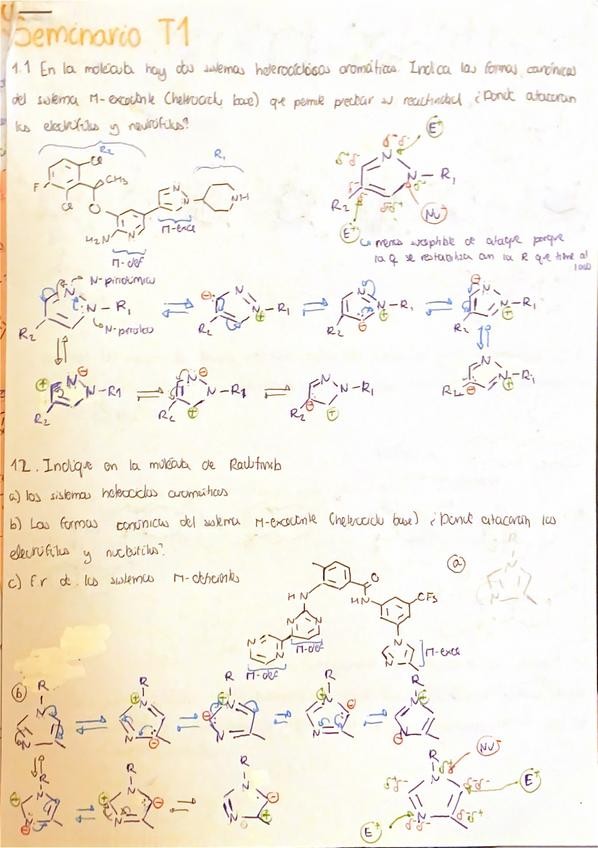 Seminario T1
1.1 En la molécula hay dos sistemas heterocíclicos aromáticos. Indica las formas canónicas
del sistema π-excedente (heterociclo base) que permite predecir su reactividad ¿Donde atacarán
los electrófilos y nucleófilos?
R2
R1
Cl
F
CH3
Cl
O
N
N
NH
H2N
N
π-exce
π-def
E+
δ+ δ-
N
N
R1
R2
Nu-
E+
menos susceptible de ataque porque
la q se estabiliza con la R que tiene al
lado
N-piridínico
N
N-R1
N-pirrólico
R2
N
N
R1
R2
N
N
R1
R2
N
N
R1
R2
N
N-R1
R2
N
N-R1
R2
N
N-R1
R2
N
N
R1
R2
1.2. Indique en la molécula de Radotinib
a) los sistemas heterociclos aromáticos
b) Las formas canónicas del sistema π-excedente (heterociclo base) ¿Donde atacarán los
electrófilos y nucleófilos?
c) F.r de los sistemas π-deficientes
a
R
N
N
O
H N
H N
CF3
N
N
N
N
N
N
π-def
π-def
π-exce
b
R
N
N
R
N
N
R
N
N
R
N
N
R
N
N
Nu-
R
N
N
R
N
N
R
N
N
R
N
δ+
δ-
E+
N
E+